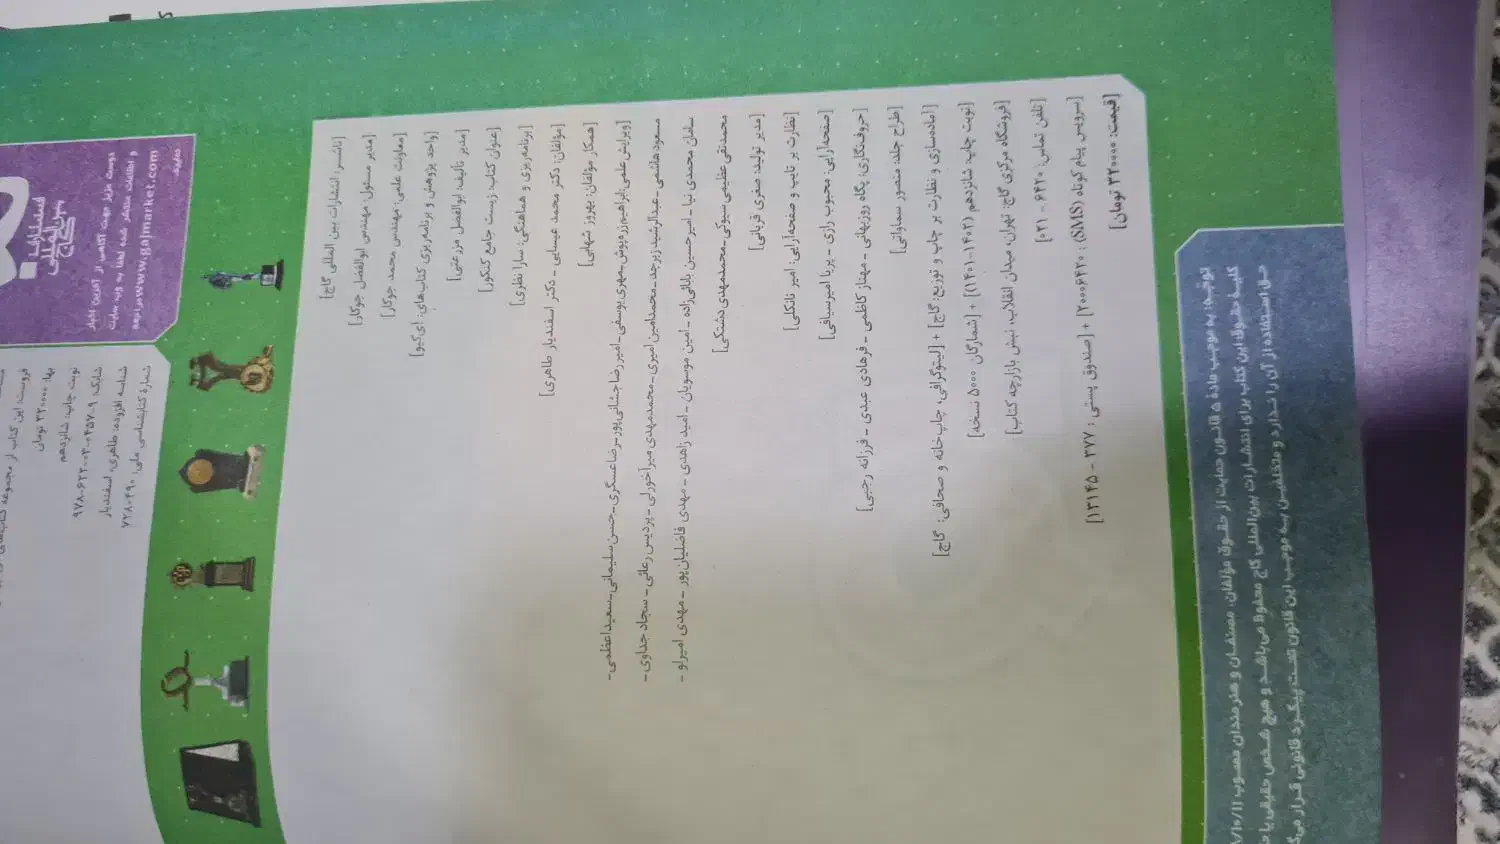 انتشارات بین‌المللی گاج
دوست عزیز جهت آگاهی از آخرین اخبار
و اطلاعات منتشر شده لطفا به وب سایت
www.gajmarket.com مراجعه
نمایید.
شمارهٔ کتابشناسی ملی: ۷۲۸۰۴۹۰
شناسه افزوده: طاهری، اسفندیار
شابک: ۹-۰۴۵۷-۰۳-۶۲۲-۹۷۸
نوبت چاپ: شانزدهم
بها: ۳۲۰۰۰۰ تومان
فروست: این کتاب از مجموعه کتاب‌های
[ناشر: انتشارات بین المللی گاج]
[مدیر مسئول: مهندس ابوالفضل جوکار]
[معاونت علمی: مهندس محمد جوکار]
[واحد پژوهش و برنامه‌ریزی کتاب‌های: آی‌کیو]
[مدیر تألیف: ابوالفضل مزرعتی]
[عنوان کتاب: زیست جامع کنکور]
[برنامه‌ریزی و هماهنگی: سارا نظری]
[مؤلفان: دکتر محمد عیسایی - دکتر اسفندیار طاهری]
[همکار مؤلفان: بهروز شهابی]
[ویرایش علمی: ابراهیم زره‌پوش - مهری یوسفی - امیررضا جشانی‌پور - رضا عسگری - حسن سلیمانی - سعید اعظمی -
مسعود هاشمی - عبدالرشید زبرجد - محمدامین امیری - محمدمهدی میرآخورلی - پردیس رعائی - سجاد جداوی -
سامان محمدی نیا - امیرحسین بابائی‌زاده - امین موسویان - امید زاهدی - مهدی فاضلیان‌پور - مهدی امیرلو -
محمدتقی عظیمی سیوکی - محمدمهدی دشتکی]
[مدیر تولید: صغری قربانی]
[نظارت بر تایپ و صفحه‌آرایی: امیر نانکلی]
[صفحه‌آرایی: محبوب رازی - پریا امیرسیافی]
[حروفنگاری: پگاه روزبهانی - مهناز کاظمی - فرهادی عبدی - فرزانه رجبی]
[طراح جلد: منصور سماواتی]
[آماده‌سازی و نظارت بر چاپ و توزیع: گاج] + [لیتوگرافی، چاپ‌خانه و صحافی: گاج]
[نوبت چاپ: شانزدهم (۱۴۰۲-۱۴۰۱)] + [شمارگان ۵۰۰۰ نسخه]
[فروشگاه مرکزی گاج: تهران، میدان انقلاب، نبش بازارچه کتاب]
[تلفن تماس: ۶۴۲۰ - ۰۲۱]
[سرویس پیام کوتاه (SMS): ۲۰۰۰۶۴۲۰] + [صندوق پستی: ۳۷۷ - ۱۳۱۴۵]
[قیمت: ۳۲۰۰۰۰ تومان]
توجه: به موجب مادهٔ ۵ قانون حمایت از حقوق مؤلفان، مصنفان و هنرمندان مصوب ۱۱/۱۰/
کلیهٔ حقوق این کتاب برای انتشارات بین‌المللی گاج محفوظ می‌باشد و هیچ شخص حقیقی یا
حق استفاده از آن را ندارد و متخلفین به موجب این قانون تحت پیگرد قانونی قرار